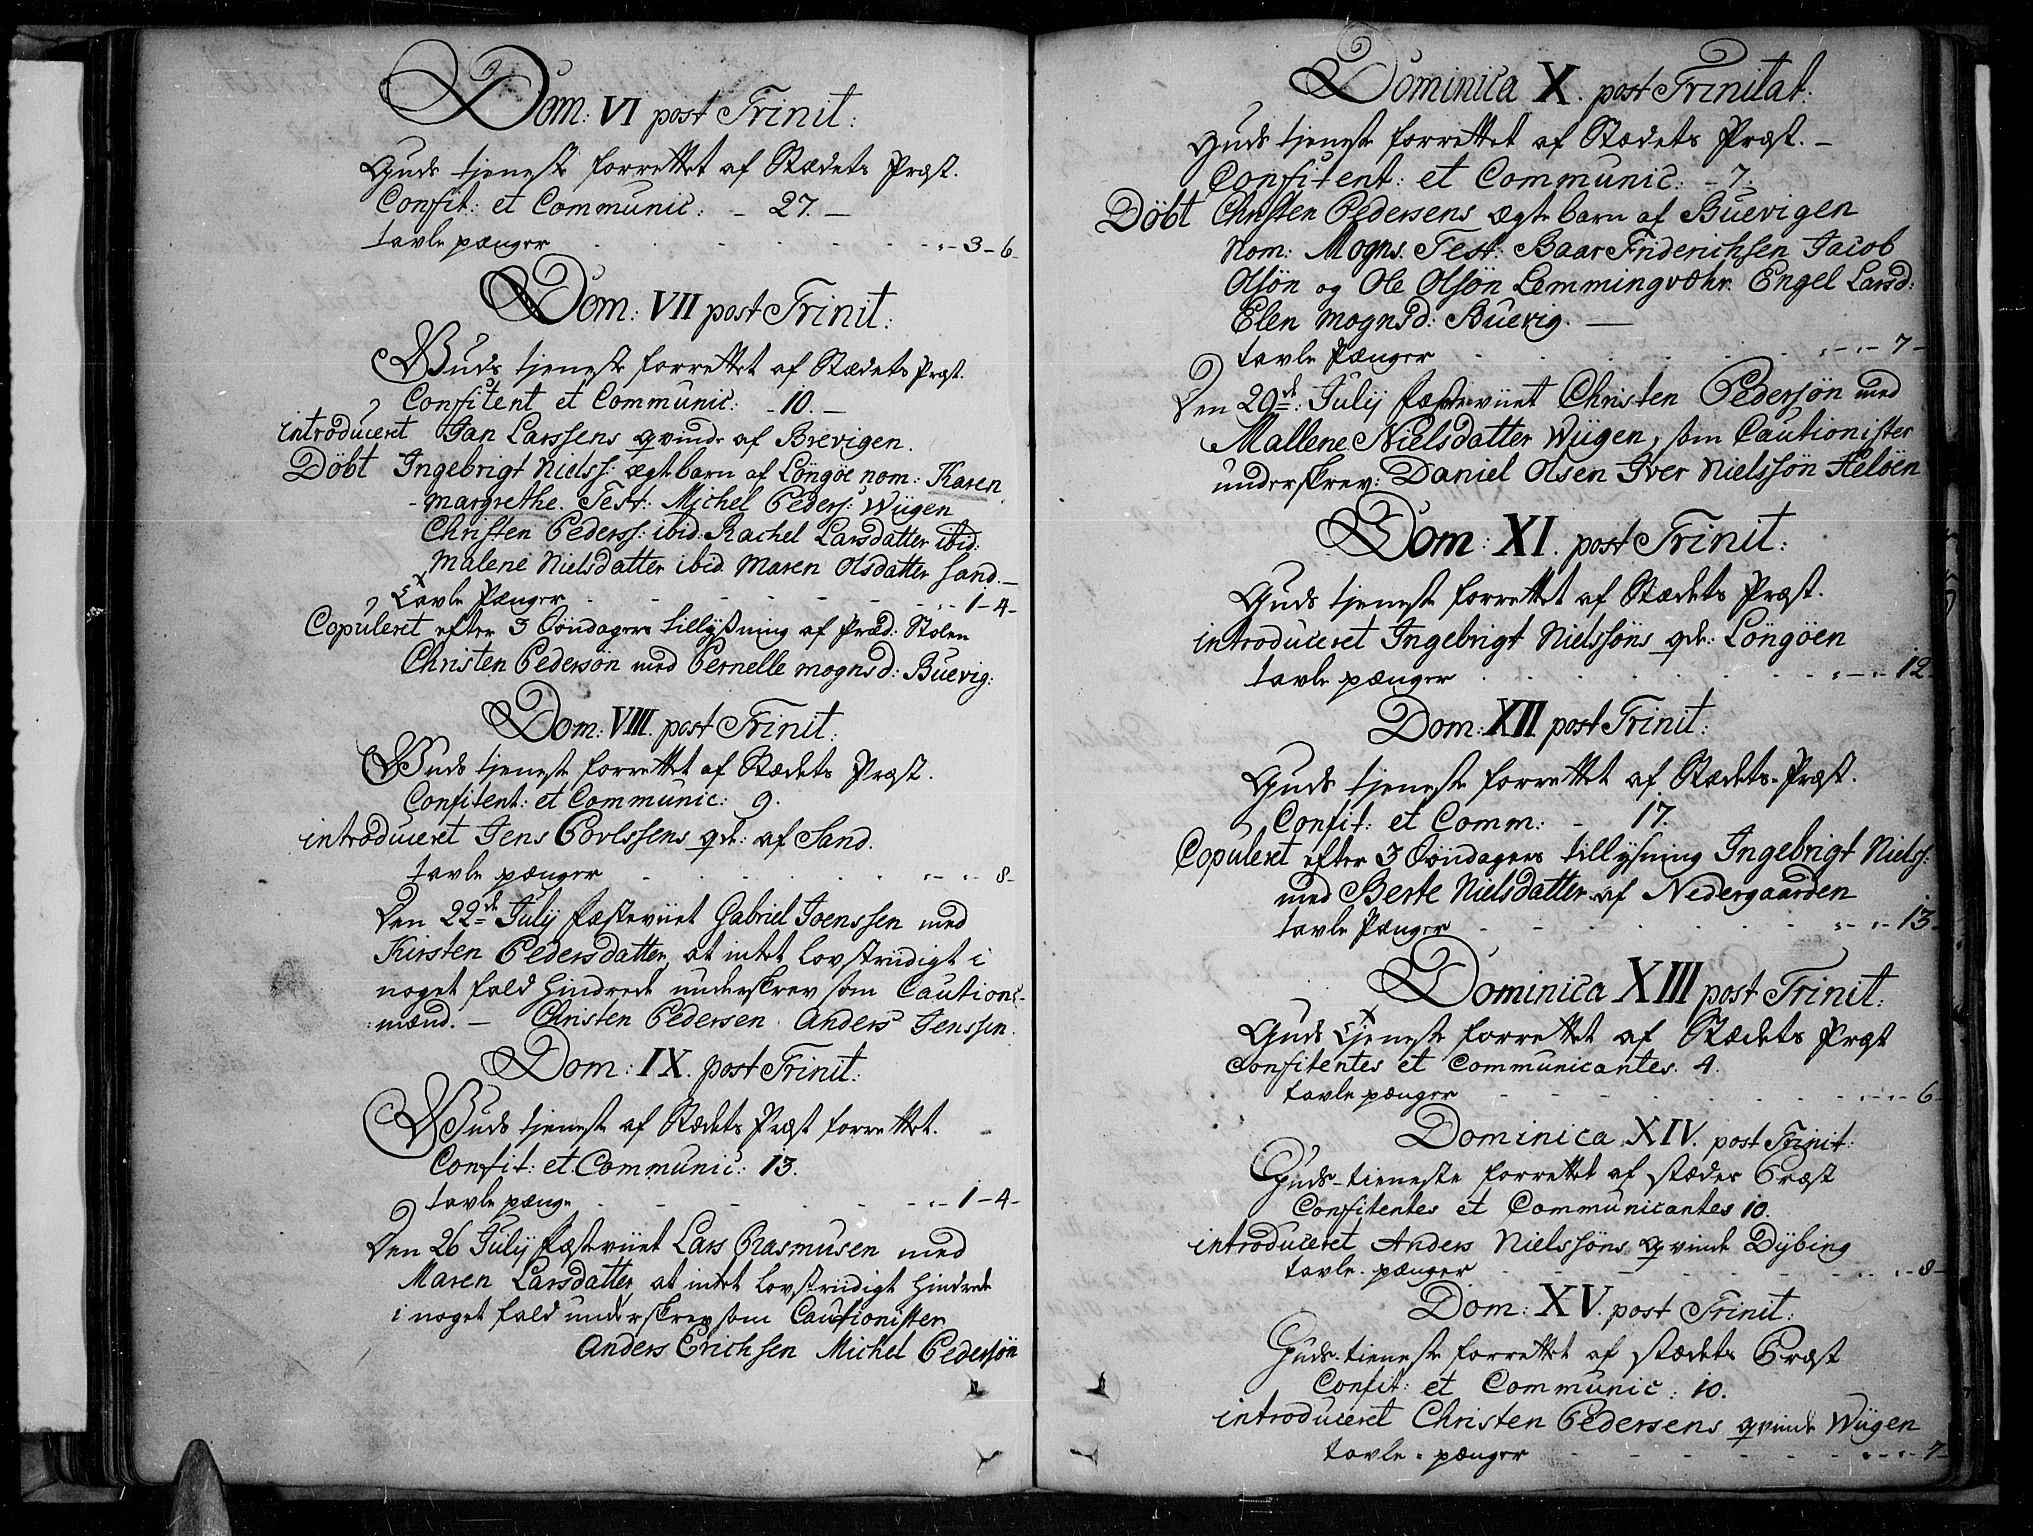 Dom: VI post Trinit:
Guds tjeneste forrettet af Stædets Præst.
Confit: et Communic: - 27. -
tavle pænger - - - 3 - 6 -
Dom: VII post Trinit:
Guds tjeneste forrettet af Stædets Præst.
Confitent et Communic: - 10. -
introduceret Jan Larssens qvinde af Brevigen.
Döbt Ingebrigt Nielss: ægte barn af Löngöe nom: Karen
margrethe. Test: Michel Peders: Wügen
Christen Pederss: ibid: Rachel Larsdatter ibid:
Malene Nielsdatter ibid. Maren Olsdatter Sand. -
Tavle Pænger - - - 1 - 4 -
Copuleret efter 3 Söndagers tillysning af Præd: Stolen
Christen Pedersön med Pernelle mognsd: Buevig:
Dom: VIII. post Trinit:
Guds tjeneste forrettet af Stædets Præst.
Confitent: et Communic: 9.
introduceret Jens Povlssens qde: af Sand.
tavle pænger - - - 8 -
Den 22de July fæstevüet Gabriel Joenssen med
Kirsten Pedersdatter, at intet Lovstridigt i
noget fald hindrede underskrev som Cautions-
:mænd. - Christen Pedersen Anders Jenssen.
Dom: IX. post Trinit:
Guds tjeneste af Stædets Præst forrettet.
Confit: et Communic: 13.
tavle pænge - - - 1 - 4 -
Den 26 July fæstevüet Lars Rasmusen med
Maren Larsdatter, at intet Lovstridigt hindrede
i noget fald underskrev som Cautionister
Anders Erichsen Michel Pedersön
Dominica X. post Trinitat:
Guds tjeneste forrettet af Stædets Præst. -
Confitent: et Communic: - 7.
Döbt Christen Pedersens ægte barn af Buevigen
Nom: Mogns. Test: Baar Friderichsen Jacob
Olsön og Ole Olsön Lemmingvæhr. Engel Larsd:
Elen mognsd: Buevig. -
tavle Pænger - - - 7 -
Den 29de: July fæstevüet Christen Pedersön med
Mallene Nielsdatter Wügen, som Cautionister
underskrev: Daniel Olsen Iver Nielssön Helöen
Dom: XI. post Trinit:
Guds tjeneste forrettet af Stædets Præst.
introduceret Ingebrigt Nielssöns qde: Löngöen
tavle pænger - - - 12 -
Dom: XII post Trinit:
Guds tjeneste forrettet af Stædets Præst.
Confit: et Comm: - 17.
Copuleret efter 3 Söndagers tillysning Ingebrigt Nielss:
med Berte Nielsdatter af Nedergaarden
tavle Pænger - - - 13 -
Dominica XIII post Trinit:
Guds Tjeneste forrettet af Stædets Præst
Confitentes et Communicantes. 4.
tavle pænger - - - 6 -
Dominica XIV. post Trinit:
Guds-tieneste forrettet af stædes Præst
Confitentes et Communicantes 10.
introduceret Anders Nielssöns qvinde Dÿbing
tavle-pænger - - - 8 -
Dom: XV. post Trinit:
Guds-tieneste forrettet af stædets Præst
Confit: et Communic: 10.
introduceret Christen Pedersens qvinde Wügen
tavle-pænger - - - 7 -